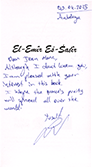 03.04.2013
Antalya
El-Emir Es-Safir
Dear Dean Mann,
Although I don't know you,
I am pleased with your
interest in this book.
I hope the poem's party
will spread all over the
world.